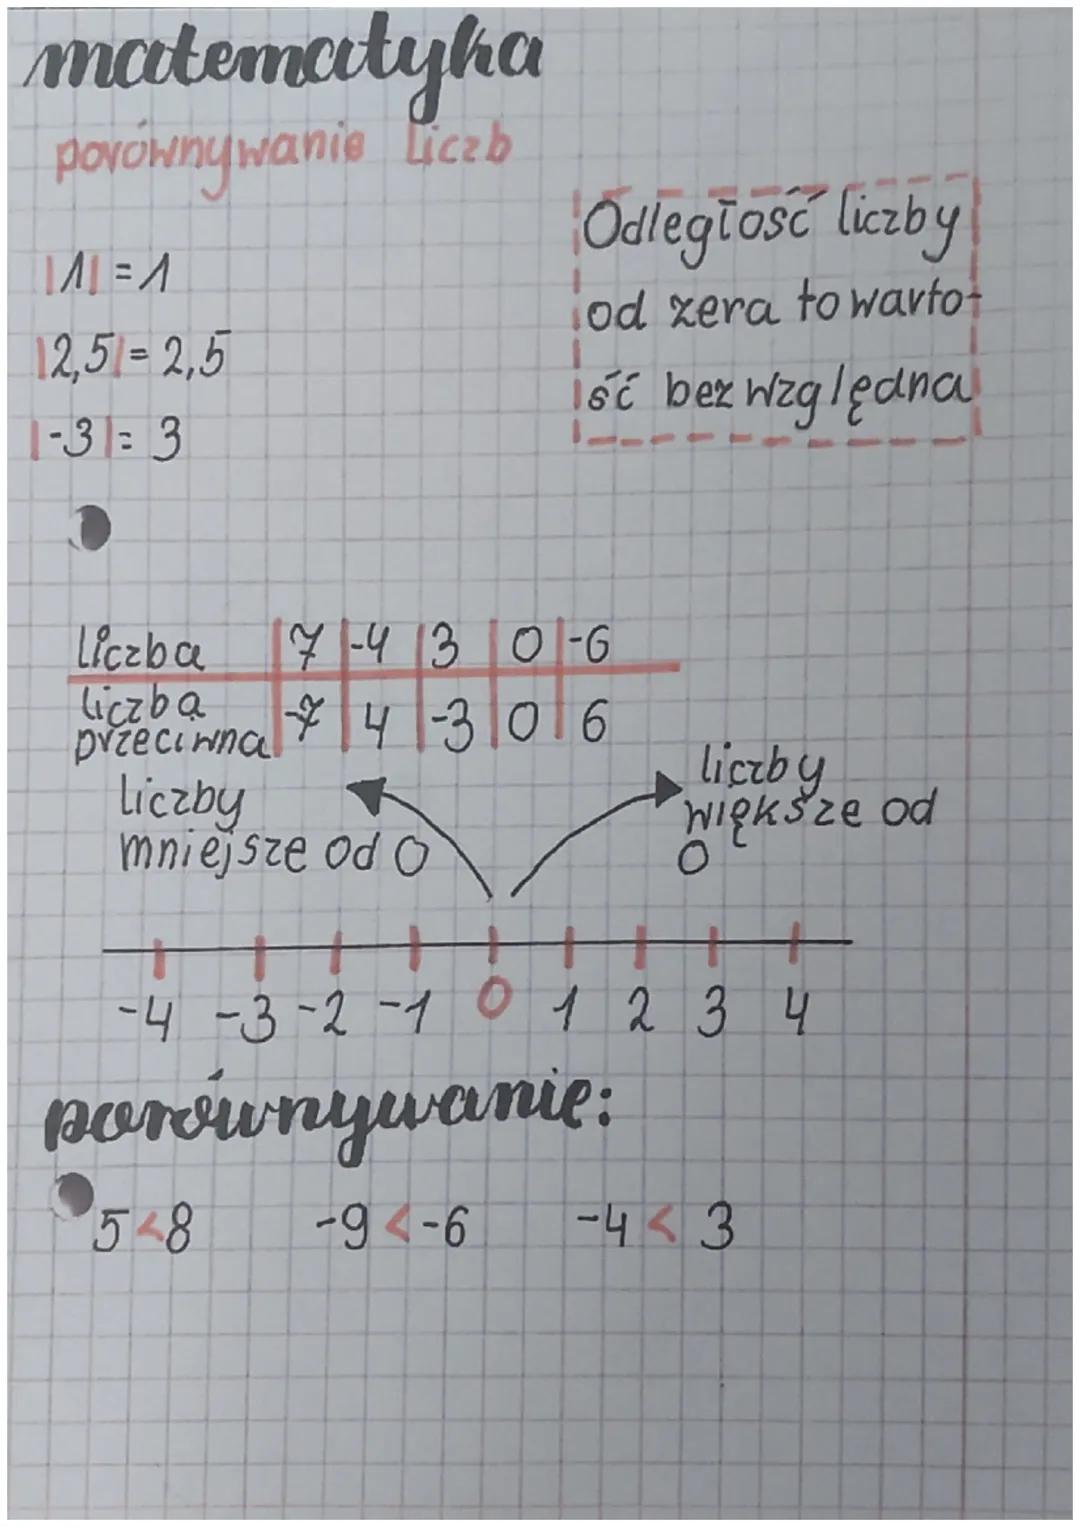 matematyka
porównywanie liczb
|1| = 1
|2,5| = 2,5
|-3| = 3
Odległość liczby
od zera to warto-
ść bezwzględna
liczba 7 -4 3 0 -6
liczba
przeciwna -7 4 -3 0 6
liczby
mniejsze od 0
liczby
większe od
0
-4 -3 -2 -1 0 1 2 3 4
porównywanie:
5 < 8 -9 < -6 -4 < 3